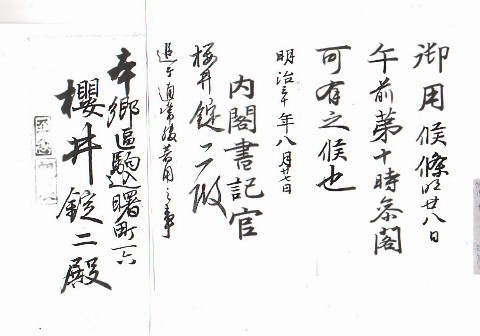 御用候條明廿八日
午前第十時参閣
可有之候也
明治三十年八月廿七日
内閣書記官
櫻井錠二殿
追テ通常服着用之事
本郷區駒込曙町一六
櫻井錠二殿